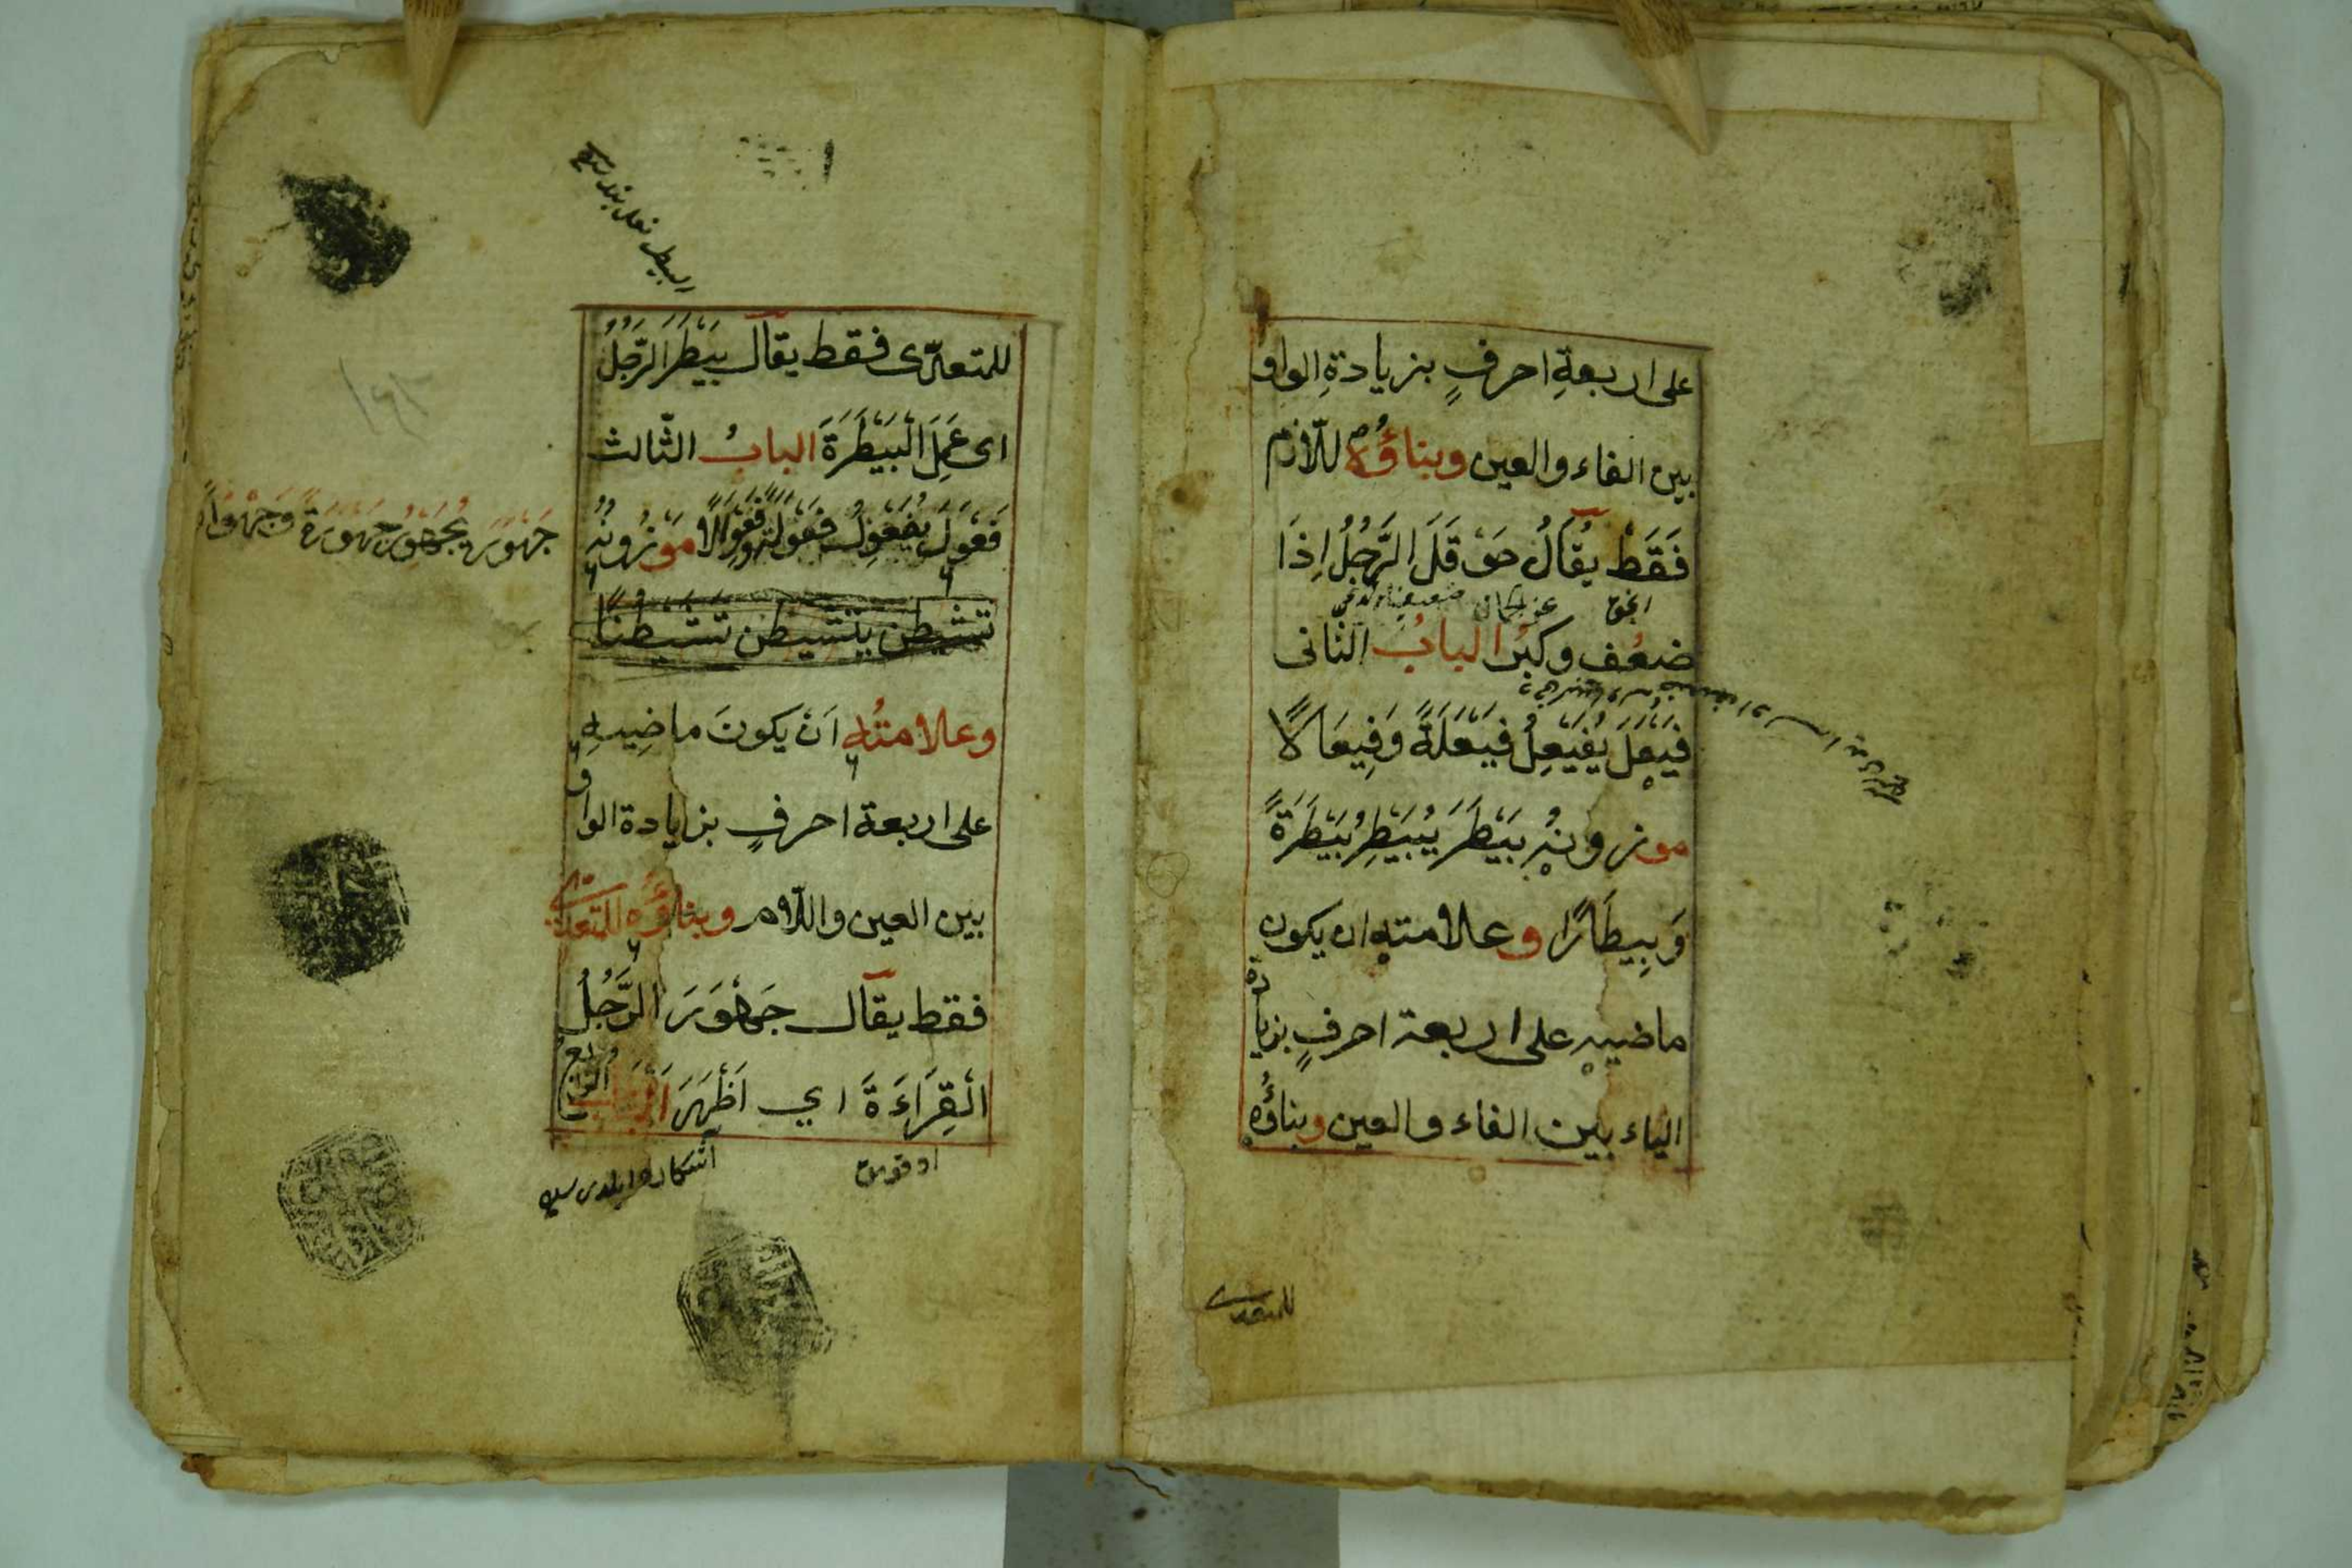 على اربعةِ احرفٍ بزيادةِ الواو
بين الفاء والعين وبناؤُهُ للّازم
فَقَطْ يُقَالُ حَوْقَلَ الرَّجُلُ اِذَا
ضعُف وكبُر البابُ الثانى
فَيْعَلَ يُفَيْعِلُ فَيْعَلَةً وَفِيعَالًا
موزونُه بَيْطَرَ يُبَيْطِرُ بَيْطَرَةً
وَبِيطَارًا وعلامته ان يكون
ماضيه على اربعة احرفٍ بزيادة
الياء بين الفاء والعين وبناؤُه
للمتعدى
للمتعدّى فقط يقال بَيْطَرَ الرَّجُلُ
اى عَمِلَ الْبَيْطَرَةَ البابُ الثّالث
فَعْوَلَ يُفَعْوِلُ فَعْوَلَةً وفِعْوَالًا موزُونُه
جَهْوَرَ يُجَهْوِرُ جَهْوَرَةً وَجِهْوَارًا
تشيطن يتشيطن تَشَيْطُنًا
وعلامتُه اَنْ يكونَ ماضِيهِ
على اربعة احرفٍ بزيادة الواو
بين العين واللّام وبناؤُه للمتعدى
فقط يقال جَهْوَرَ الرَّجُلُ
الْقِرَاءَةَ اي اَظْهَرَ اَلْبَابُ الرابع